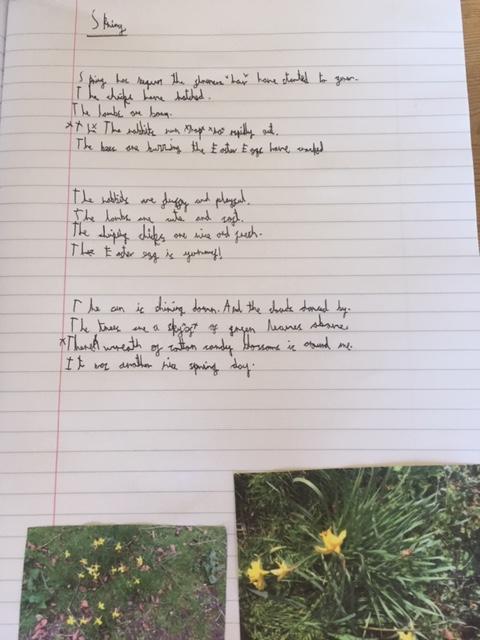 Spring
Spring has begun the flowers have started to grow.
The chicks have hatched.
The lambs are born.
The rabbits run hop hop out.
The bees are buzzing the Easter Eggs have
The rabbits are fluffy and playful.
The lambs are cute and soft.
The chicks are nice and fresh.
The Easter egg is yummy!
The sun is shining down. And the clouds by.
The trees are a of green leaves above
A wreath of cotton candy blossoms is around me.
It was another nice spring day.